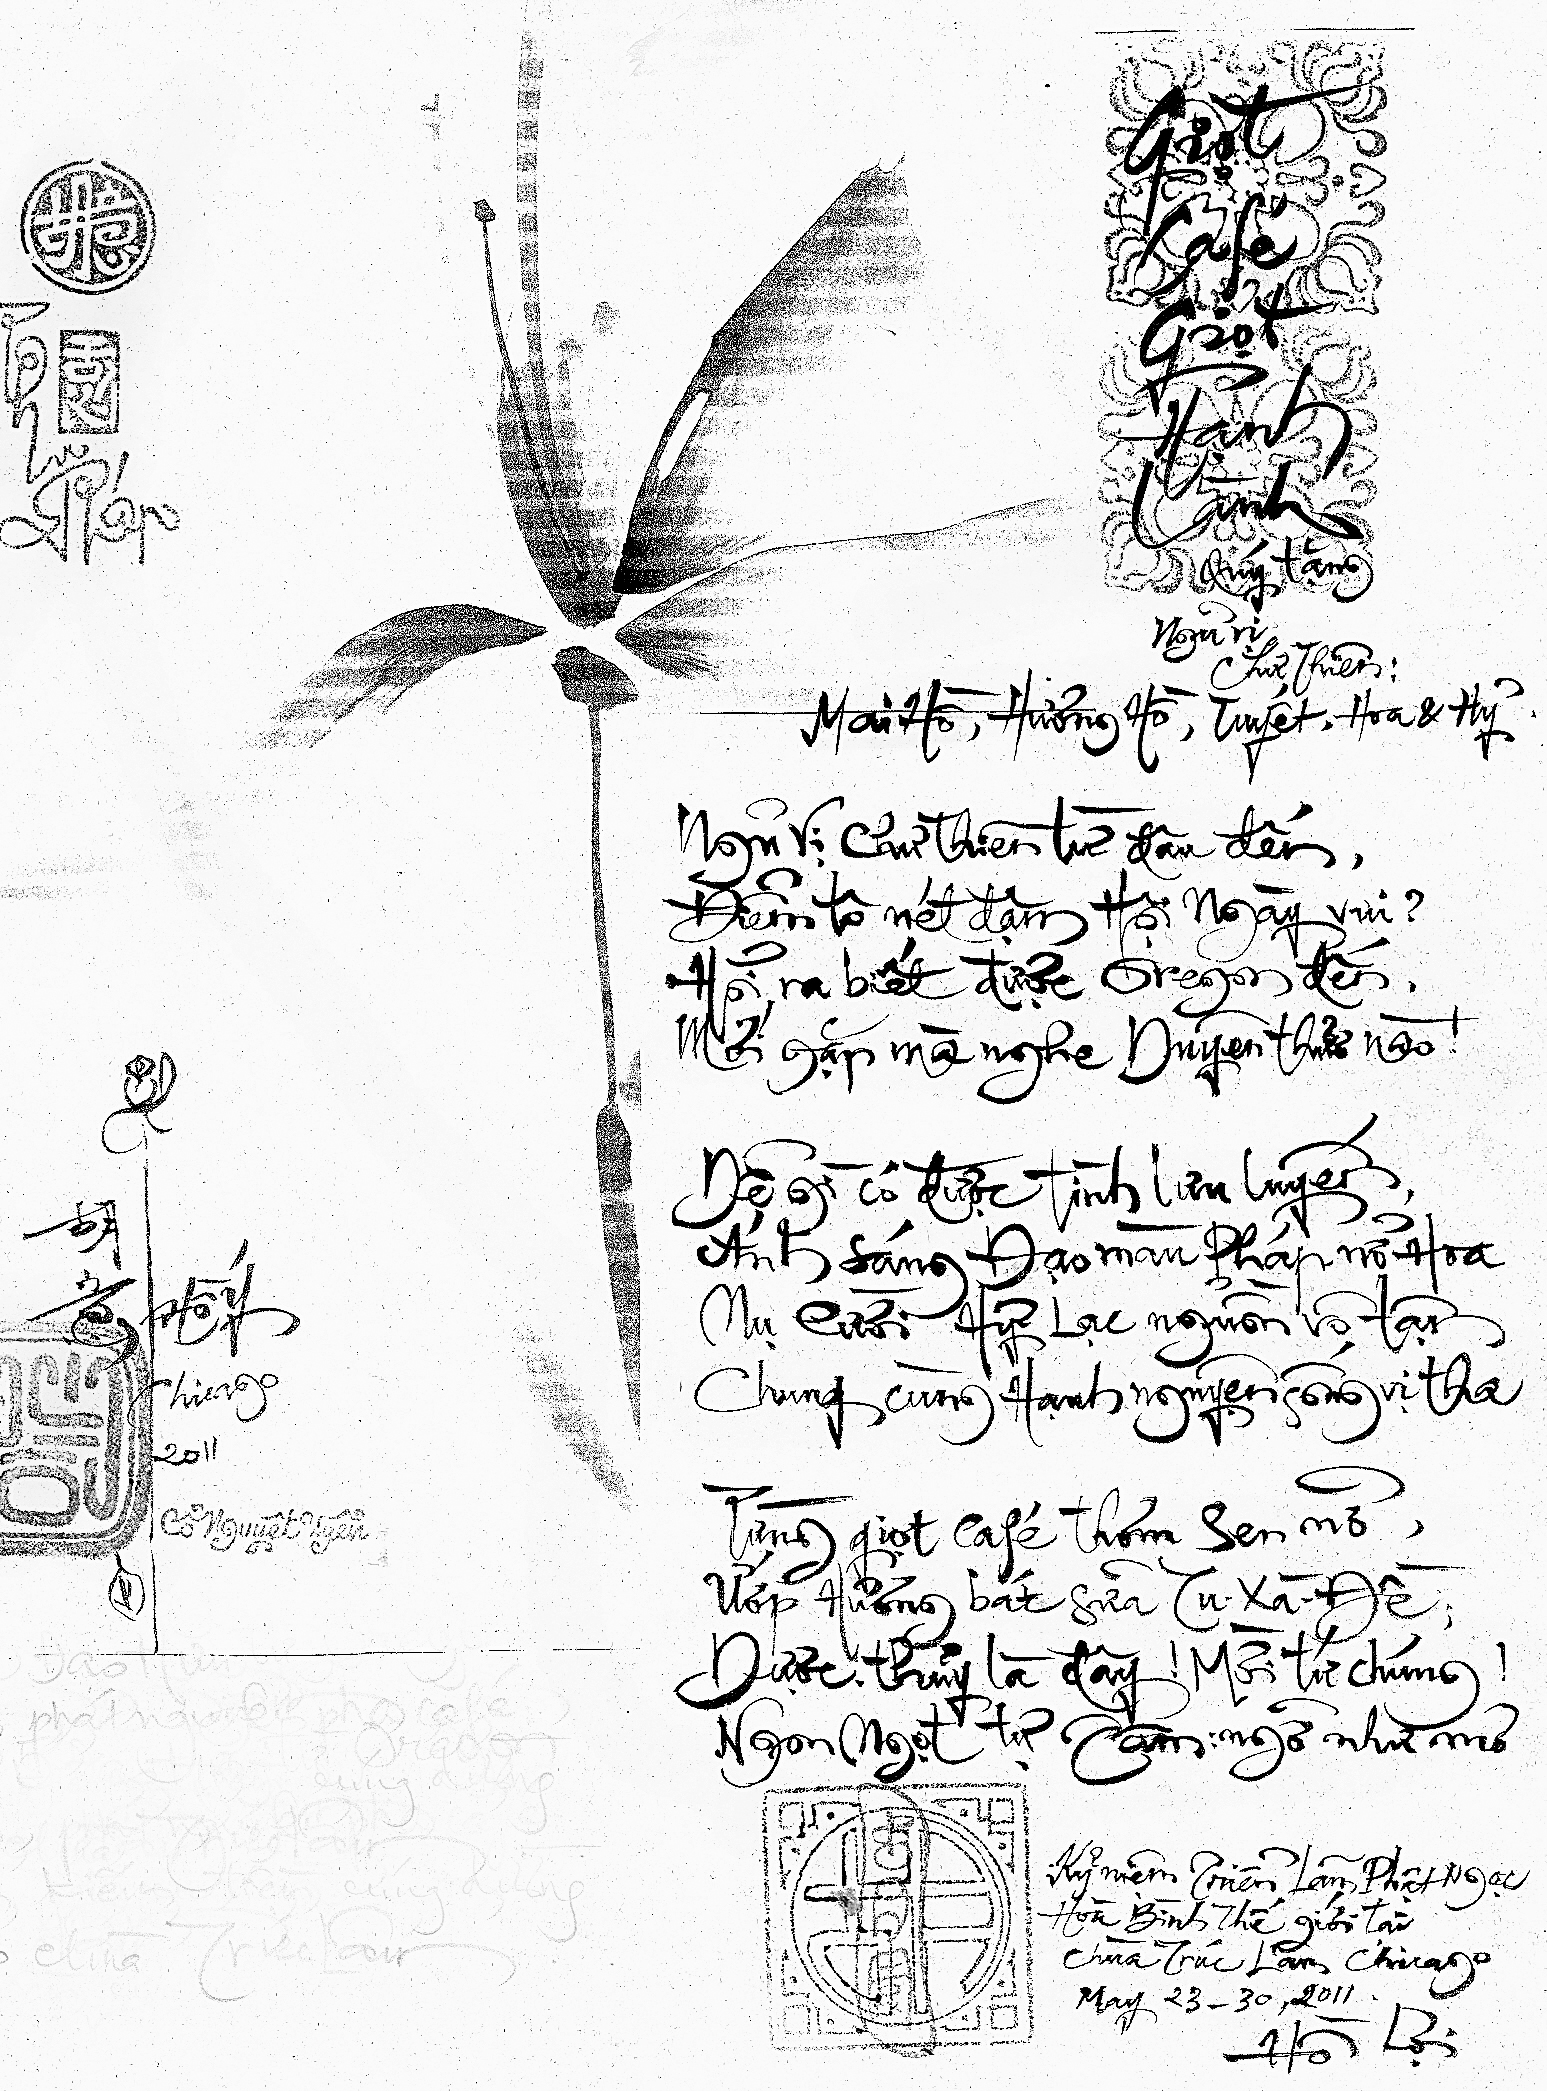 Giọt
Café
Giọt
Hạnh
Lành
Quý tặng
Ngũ vị
Chư Thiên:
Mai Hồ, Hương Hồ, Tuyết, Hoa & Hỷ.
Ngũ Vị Chư thiên từ đâu đến,
Điểm tô nét đậm Hội Ngày vui?
Hỏi ra biết được Oregon đến.
Mới gặp mà nghe Duyên thuở nào!
Dễ gì có được tình lưu luyến,
Ánh sáng Đạo mầu Pháp nở Hoa
Nụ cười Hỷ Lạc nguồn vô tận
Chung cùng Hạnh nguyện sống vị tha
Từng giọt café thơm Sen nở,
Ướp Hương bát sữa Tu-Xà-Đề;
Dược thủy là đây! Mời tứ chúng!
Ngon Ngọt tự Tâm: ngỡ như mơ
Kỷ niệm Triển Lãm Phật Ngọc
Hoà Bình Thế giới tại
chùa Trúc Lâm Chicago
May 23-30, 2011.
Hồ Lợi
Pháp
胡
意
Hồ Ý
Chicago
2011
Cỗ Nguyệt Uyển